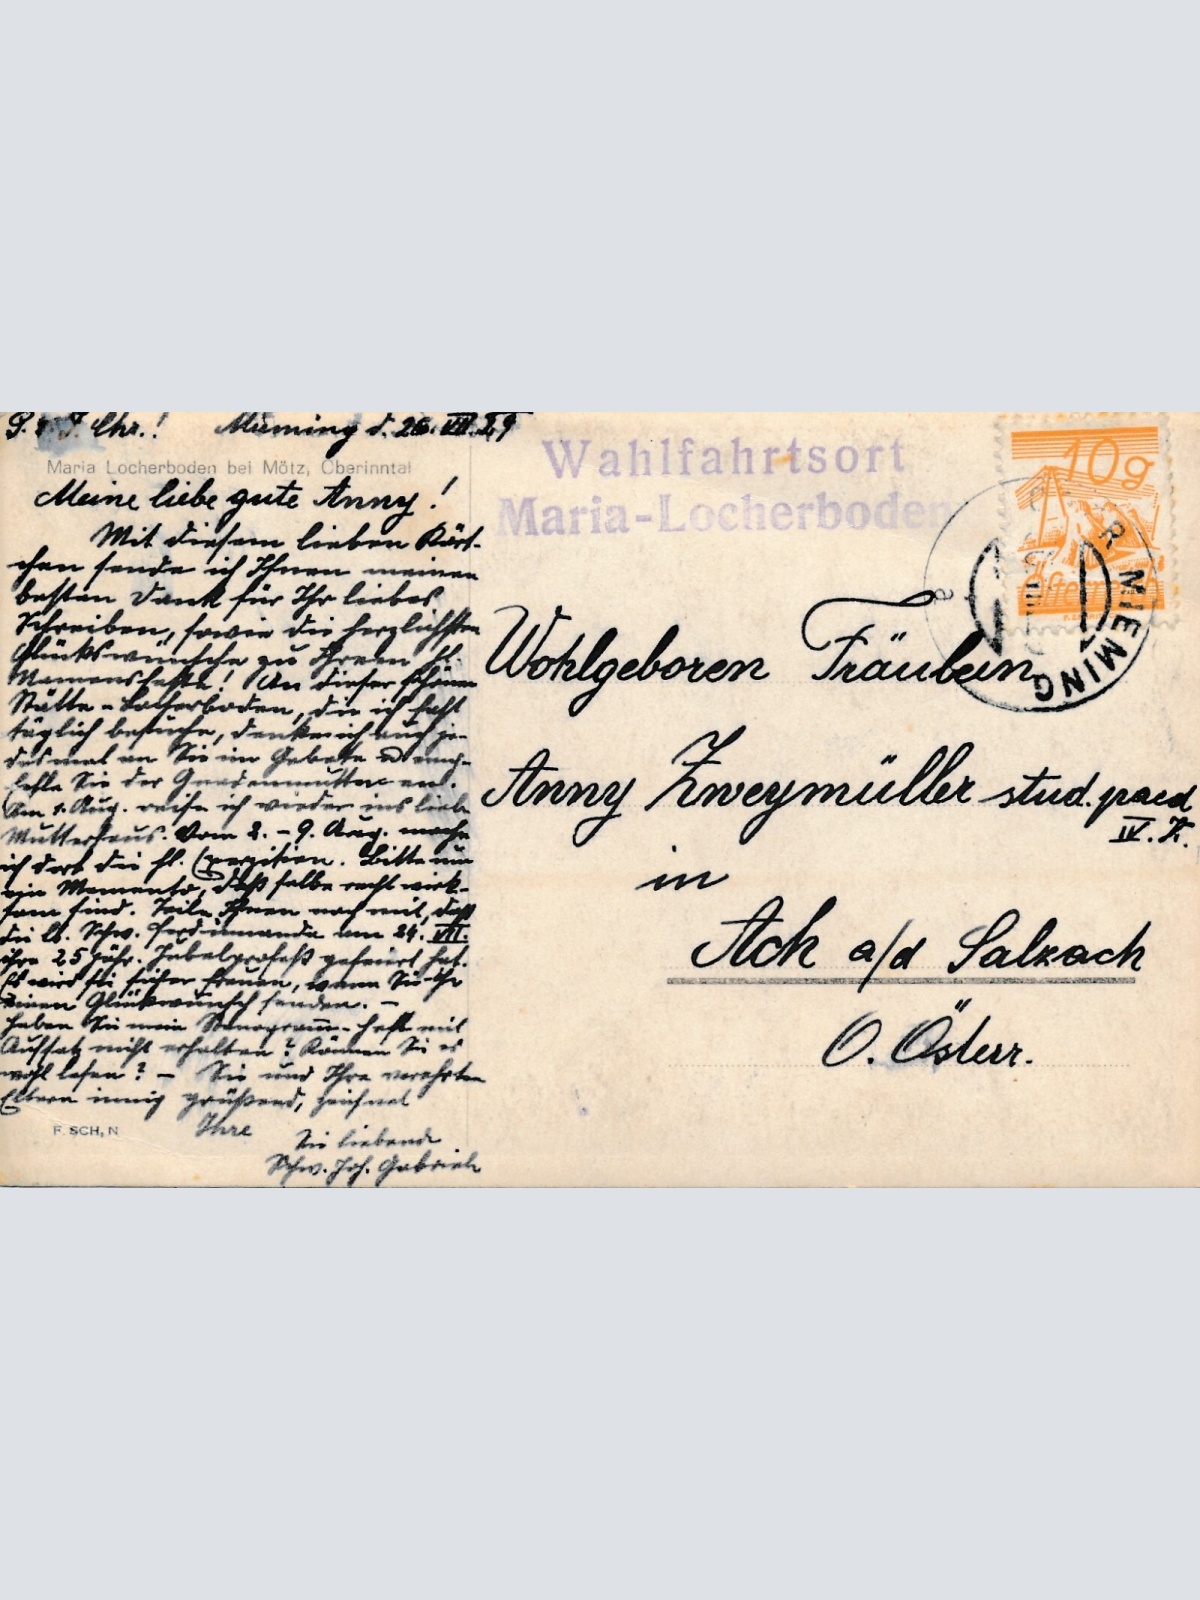 G. s. J. Chr.! Mieming d. 26. VII. 29
Maria Locherboden bei Mötz, Oberinntal
Meine liebe gute Anny!
Mit diesem lieben Kärt-
chen sende ich Ihnen meinen
besten Dank für Ihr liebes
Schreiben, sowie die herzlichsten
Glückswünsche zu Ihrem hl.
Namensfeste! An dieser schönen
Stätte - Locherboden, die ich fast
täglich besuche, denke ich auch je-
desmal an Sie im Gebete u. emp-
fehle Sie der Gnadenmutter an.
Am 1. Aug. reise ich wieder ins liebe
Mutterhaus. Vom 2. - 9. Aug. mache
ich dort die hl. Exerzitien. Bitte um
ein Memento, daß selbe recht wirk-
sam sind. Teile Ihnen noch mit, daß
die lb. Schw. Ferdinanda am 24. VII.
ihre 25 jähr. Jubelprofeß gefeiert hat.
Es wird sie sicher freuen, wenn Sie ihr
einen Glückwunsch senden. -
Haben Sie mein Stenogramm-Heft mit
Aufsatz nicht erhalten? Können Sie es
wohl lesen? - Sie und Ihre verehrten
Eltern innig grüßend, zeichnet
Ihre
Sie liebende
Schw. Joh. Gabriele
F. SCH, N
Wahlfahrtsort
Maria-Locherboden
10g
Österreich
R MIEMING
a
Wohlgeboren Fräulein
Anny Zweymüller stud. paed
IV. K.
in
Ach a/d Salzach
O. Österr.